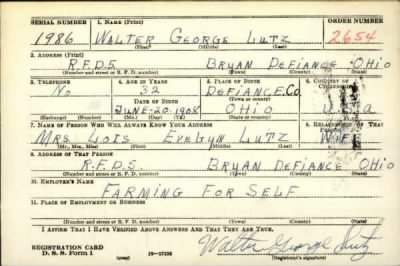 SERIAL NUMBER 1. NAME (Print) ORDER NUMBER
1986 WALTER GEORGE LUTZ 2654
(First) (Middle) (Last)
2. ADDRESS (Print)
R.F.D.5 BRYAN DEFIANCE OHIO
(Number and street or R. F. D. number) (Town) (County) (State)
3. TELEPHONE 4. AGE IN YEARS 5. PLACE OF BIRTH 6. COUNTRY OF CITIZENSHIP
No 32 DEFIANCE Co.
DATE OF BIRTH (Town or county)
JUNE-20-1908 OHIO
(Exchange) (Number) (Mo.) (Day) (Yr.) (State or country)
7. NAME OF PERSON WHO WILL ALWAYS KNOW YOUR ADDRESS 8. RELATIONSHIP OF THAT PERSON
MRS LOIS EVELYN LUTZ WIFE
(Mr., Mrs., Miss) (First) (Middle) (Last)
9. ADDRESS OF THAT PERSON
R.F.D.5 BRYAN DEFIANCE OHIO
(Number and street or R. F. D. number) (Town) (County) (State)
10. EMPLOYER'S NAME
FARMING FOR SELF
11. PLACE OF EMPLOYMENT OR BUSINESS
(Number and street or R. F. D. number) (Town) (County) (State)
I AFFIRM THAT I HAVE VERIFIED ABOVE ANSWERS AND THAT THEY ARE TRUE.
REGISTRATION CARD
D. S. S. Form 1 (over) Walter George Lutz
(Registrant's signature)